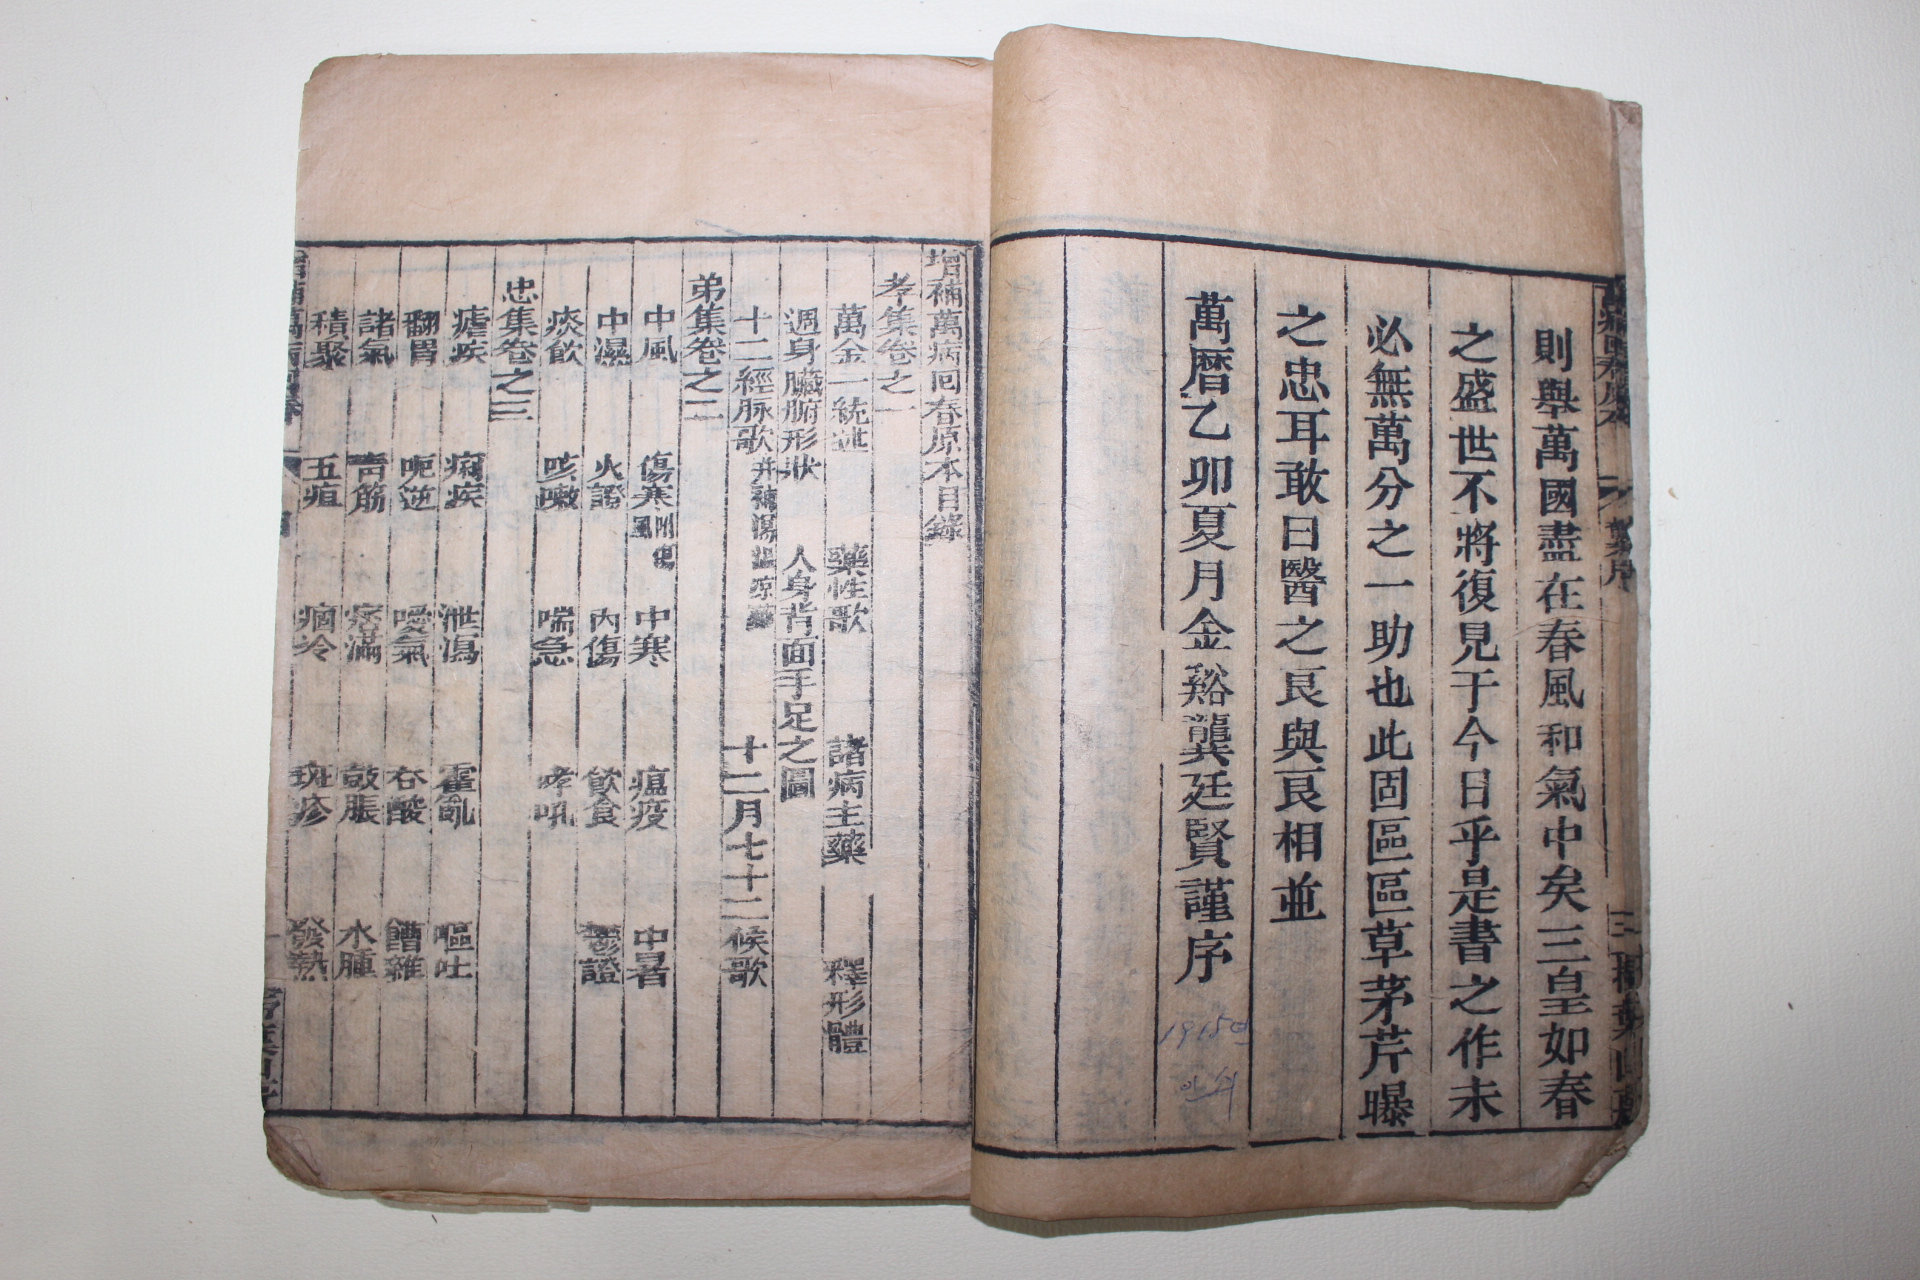 則舉萬國盡在春風和氣中矣三皇如春
之盛世不將復見于今日乎是書之作未
必無萬分之一助也此固區區草茅芹曝
之忠耳敢曰醫之良與良相並
萬曆乙卯夏月金谿龔廷賢謹序
增補萬病回春原本目錄
孝集卷之一
萬金一統述 藥性歌 諸病主藥 釋形體
週身臟腑形狀 人身背面手足之圖
十二經脉歌 十二月七十二候歌
弟集卷之二
中風 傷寒 中寒 瘟疫 中暑
中濕 火證 內傷 飲食 鬱證
痰飲 咳嗽 喘急 哮吼
忠集卷之三
瘧疾 痢疾 泄瀉 霍亂 嘔吐
翻胃 呃逆 噯氣 吞酸 嘈雜
諸氣 青筋 痞滿 鼓脹 水腫
積聚 五疸 痼冷 斑疹 發熱